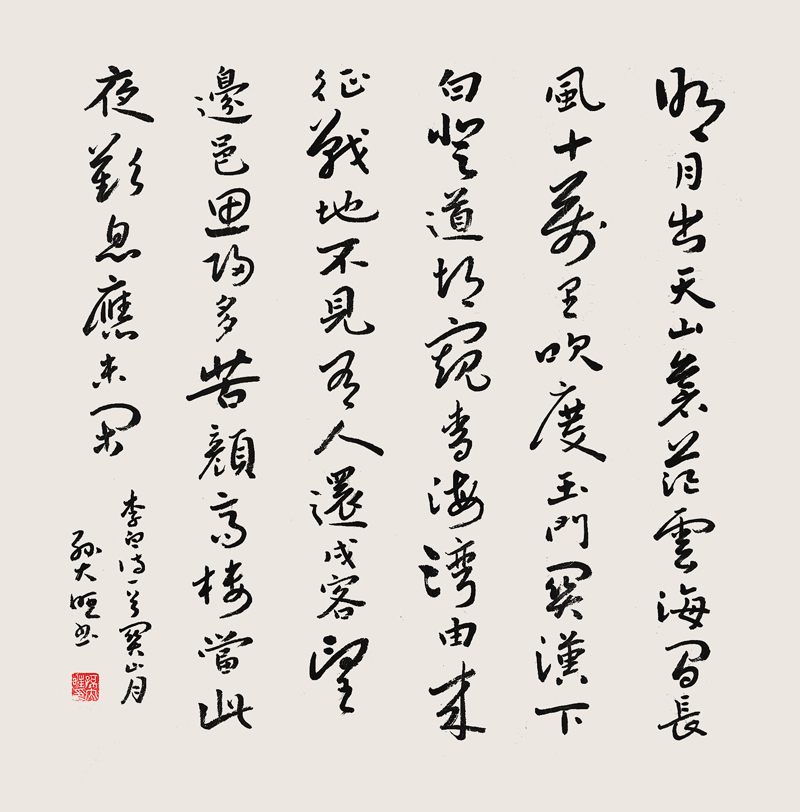 明月出天山蒼茫雲海間長
風十萬里吹度玉門關漢下
白登道胡窺青海湾由來
征戰地不見有人還戍客望
邊邑思歸多苦顏高樓當此
夜歎息應未閑
李白诗一首關山月
孫大書